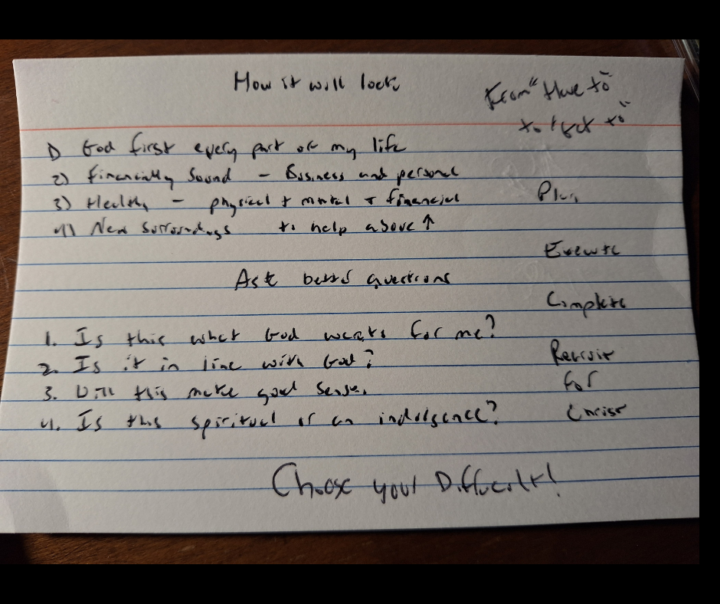 How it will look
From "Have to"
to "Get to"
1) God first every part of my life
2) Financially Sound - Business and personal
3) Healthy - physical + mental + financial
4) New Surroundings to help above ↑
Plan
Execute
Ask better questions
Complete
1. Is this what God wants for me?
2. Is it in line with God?
Recruit
3. Will this make good sense.
for
4. Is this spiritual or an indulgence?
Christ
Choose your Difficult!